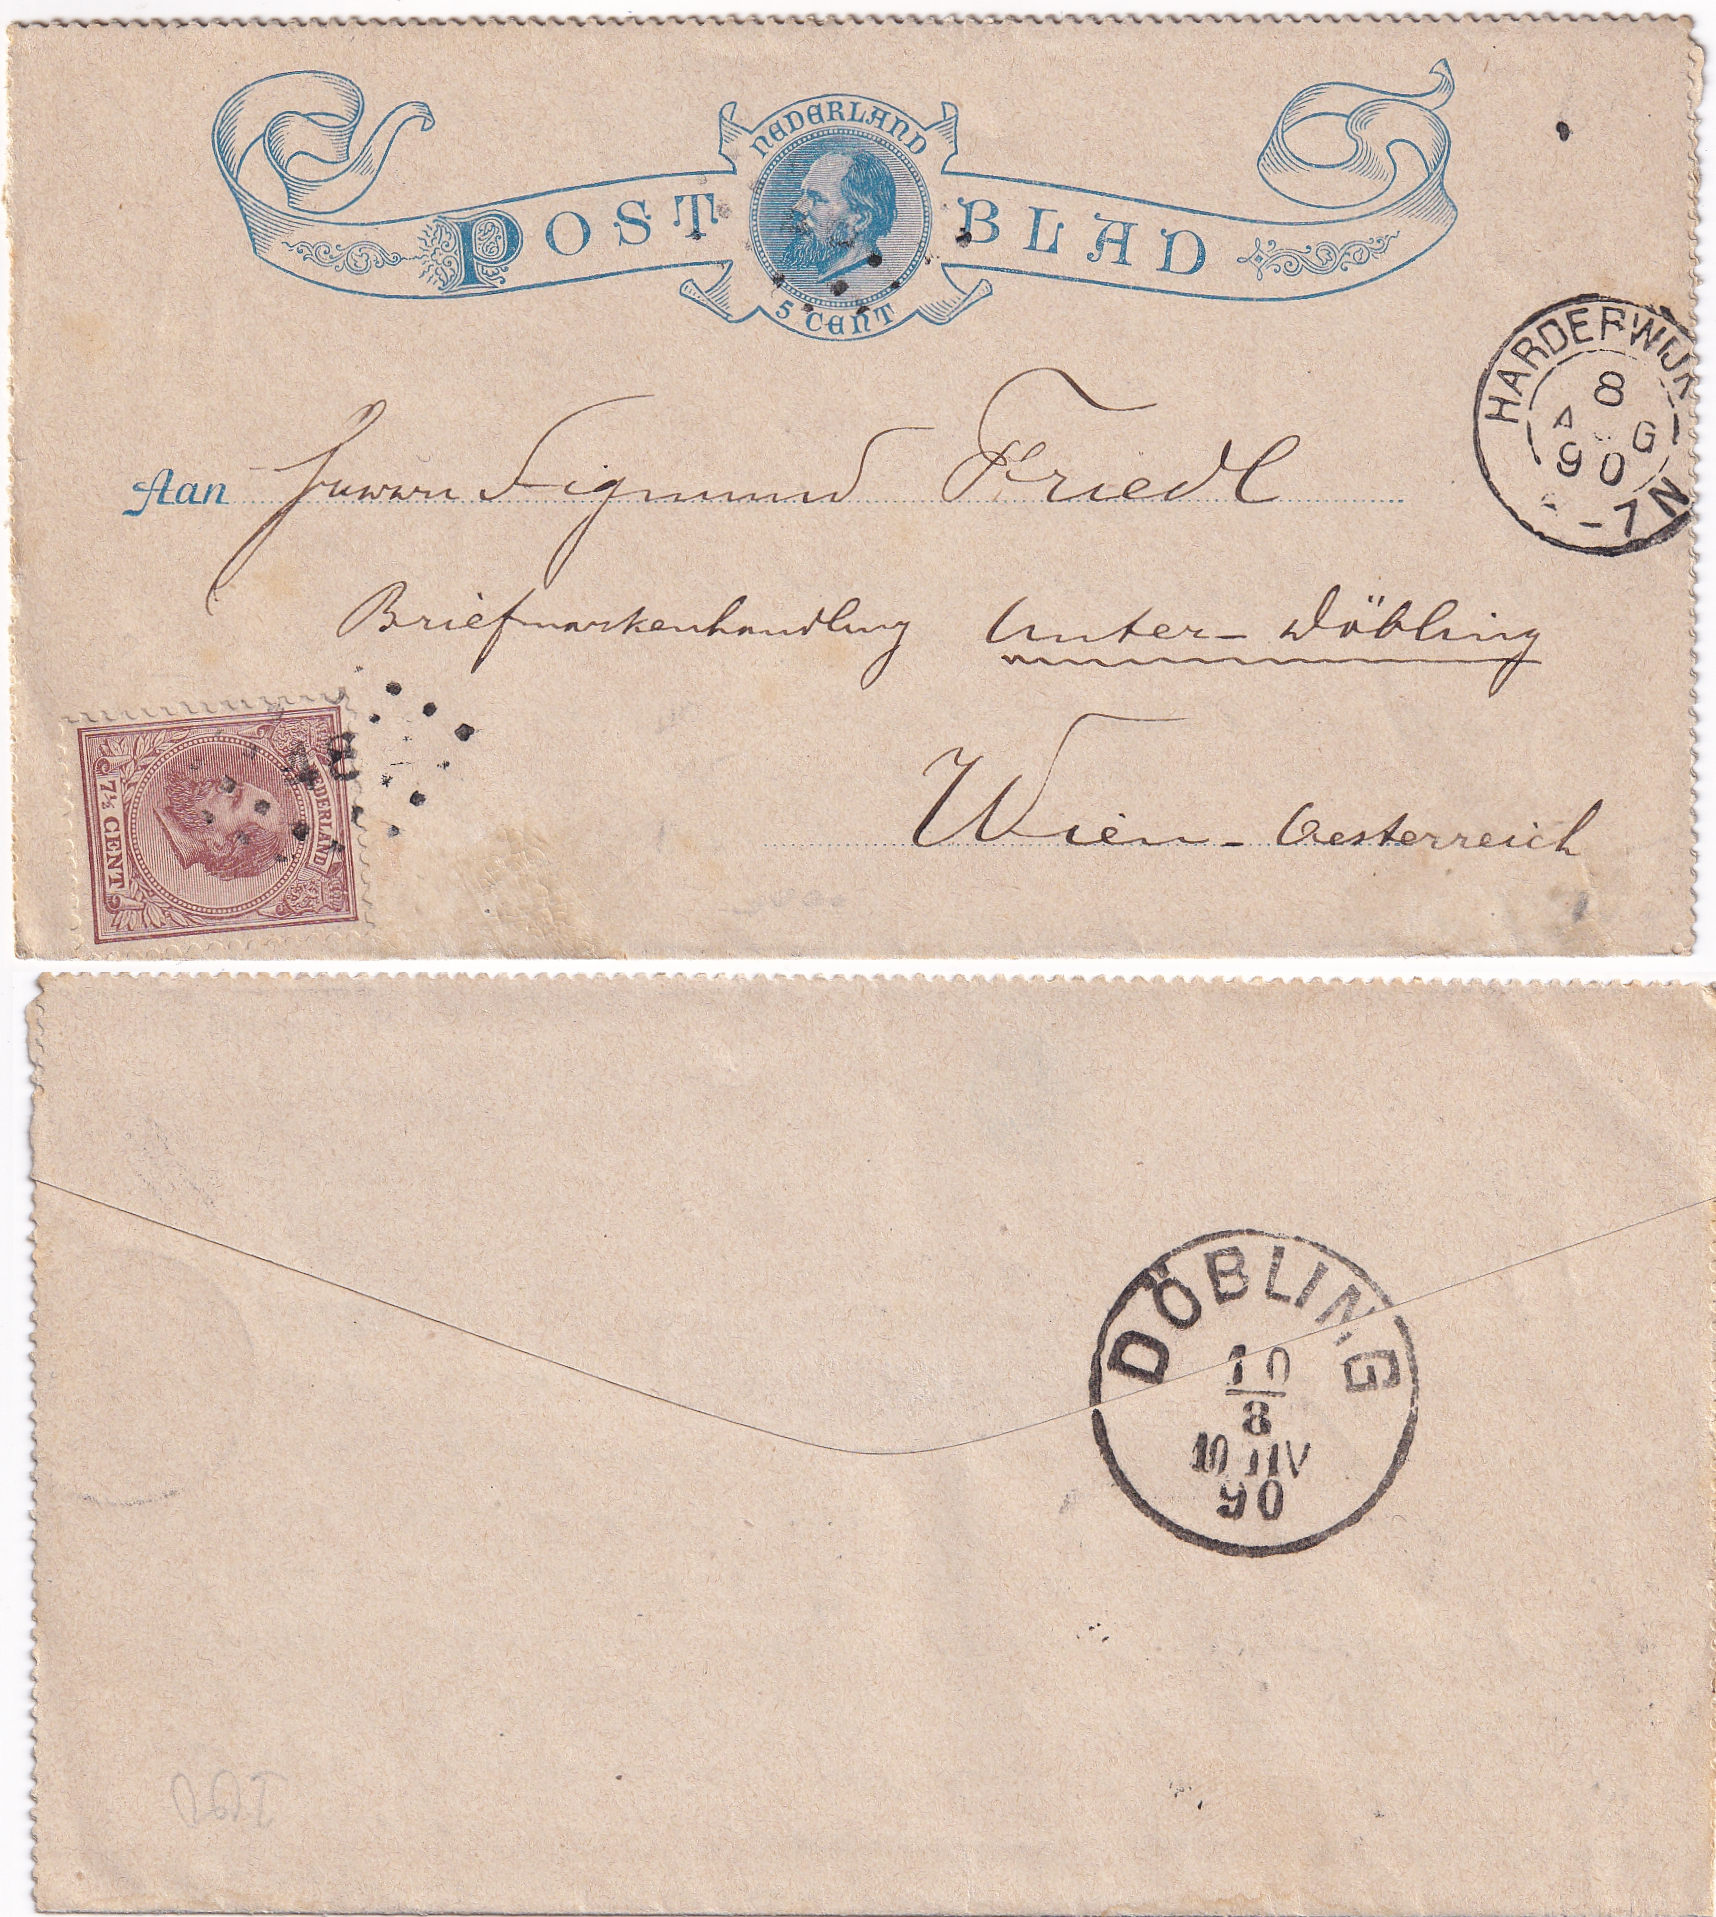 NEDERLAND
POST BLAD
5 CENT
HARDERWIJK
8
A G
90
-7 N
Aan Herrn Sigmund Friedl
Briefmarkenhandlung Unter-Döbling
Wien - Oesterreich
NEDERLAND
7½ CENT
48
DÖBLING
10
8
10 V
90